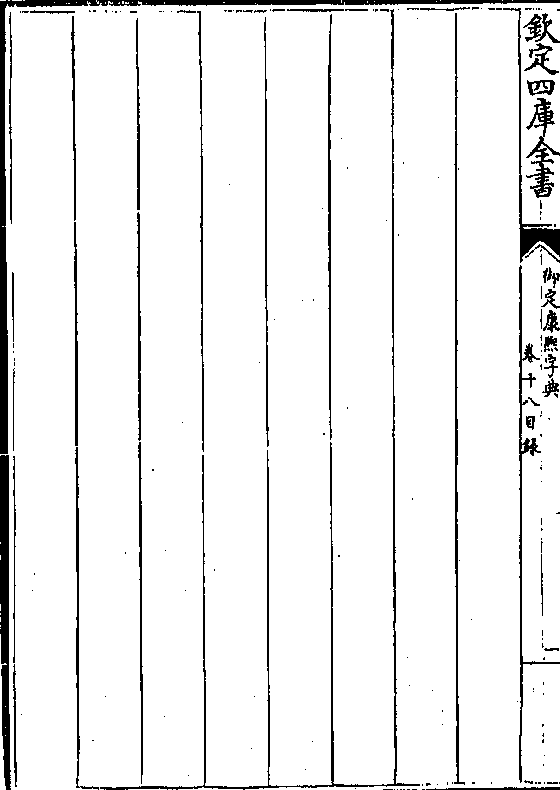 欽定四庫全書
御定康熙字典
卷十八目錄